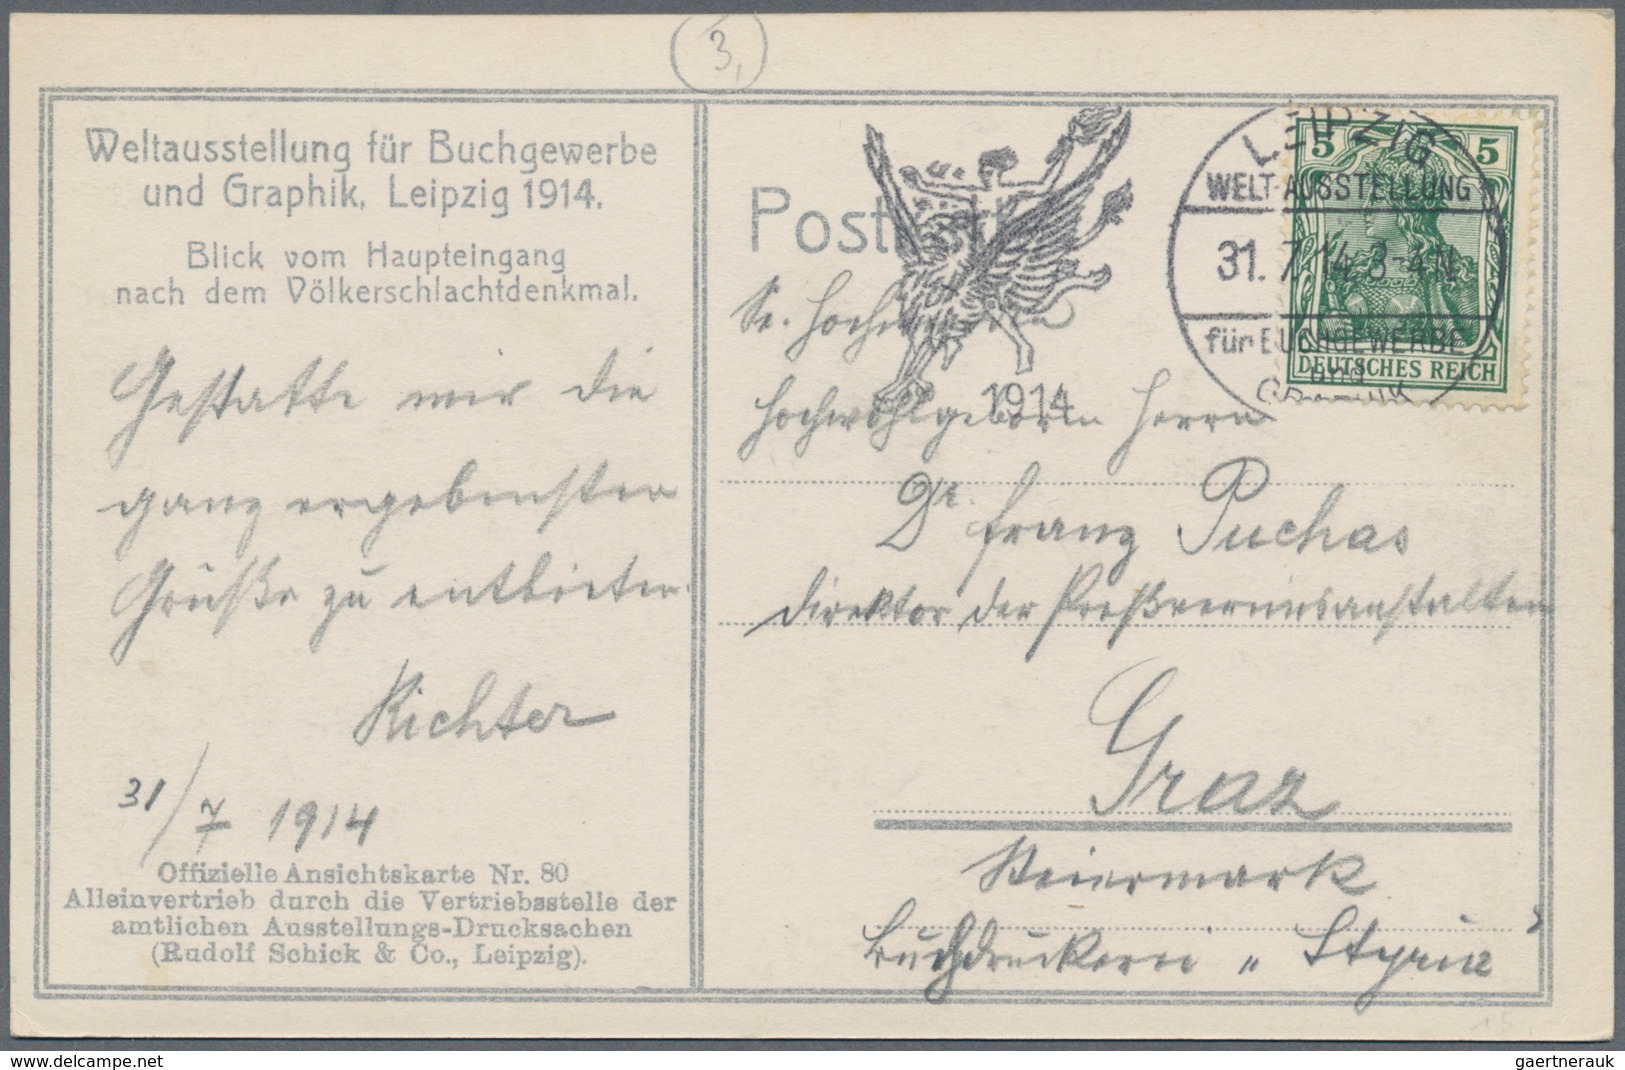 3,
Weltausstellung für Buchgewerbe
und Graphik, Leipzig 1914.
Blick vom Haupteingang
nach dem Völkerschlachtdenkmal.
Gestatte mir die
ganz ergebensten
Grüße zu entbieten.
Richter
31/7 1914
Offizielle Ansichtskarte Nr. 80
Alleinvertrieb durch die Vertriebsstelle der
amtlichen Ausstellungs-Drucksachen
(Rudolf Schick & Co., Leipzig).
1914
LEIPZIG
WELT-AUSSTELLUNG
31. 7. 14. 3-4 N.
für BUCHGEWERBE
und
GRAPHIK
5 5
DEUTSCHES REICH
Sr. Hochwürden
Hochwohlgeboren Herrn
Dr. Franz Puchas
Direktor der Preßvereinsanstalten
Graz
Steiermark
Buchdruckerei „Styria"
gaertnerauk
www.philasearch.com